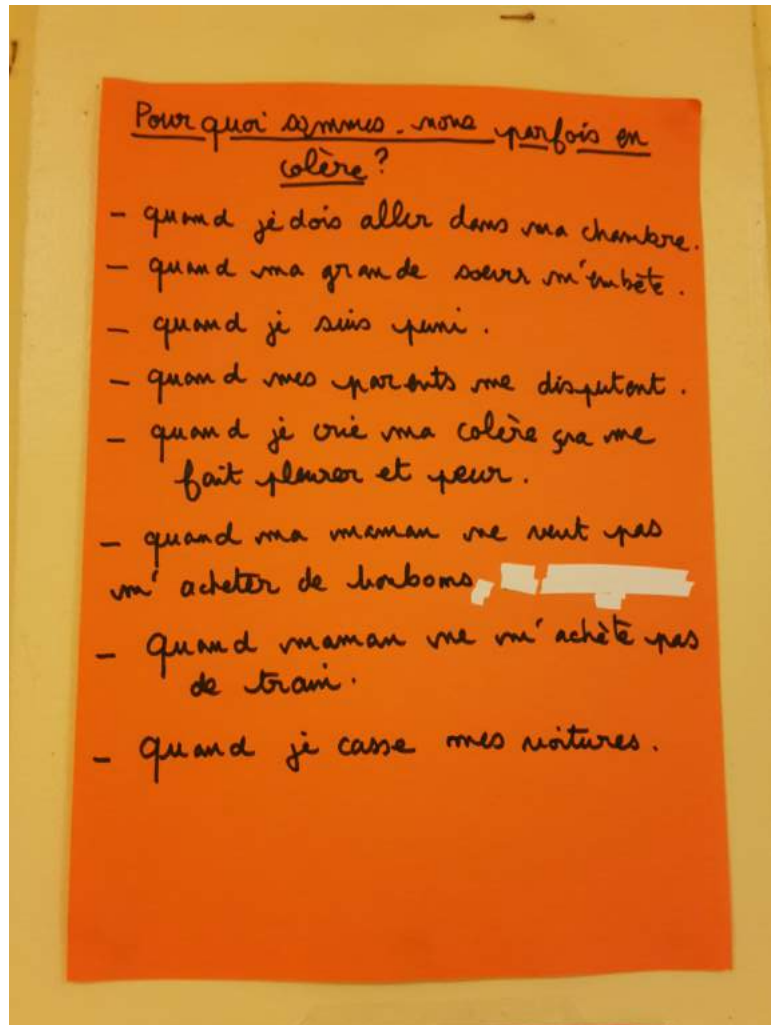 Pourquoi sommes-nous parfois en
colère ?
- quand je dois aller dans ma chambre.
- quand ma grande soeur m'embête.
- quand je suis puni.
- quand mes parents me disputent.
- quand je crie ma colère ça me
fait pleurer et peur.
- quand ma maman ne veut pas
m'acheter de bonbons,
- Quand maman ne m'achète pas
de train.
- Quand je casse mes voitures.